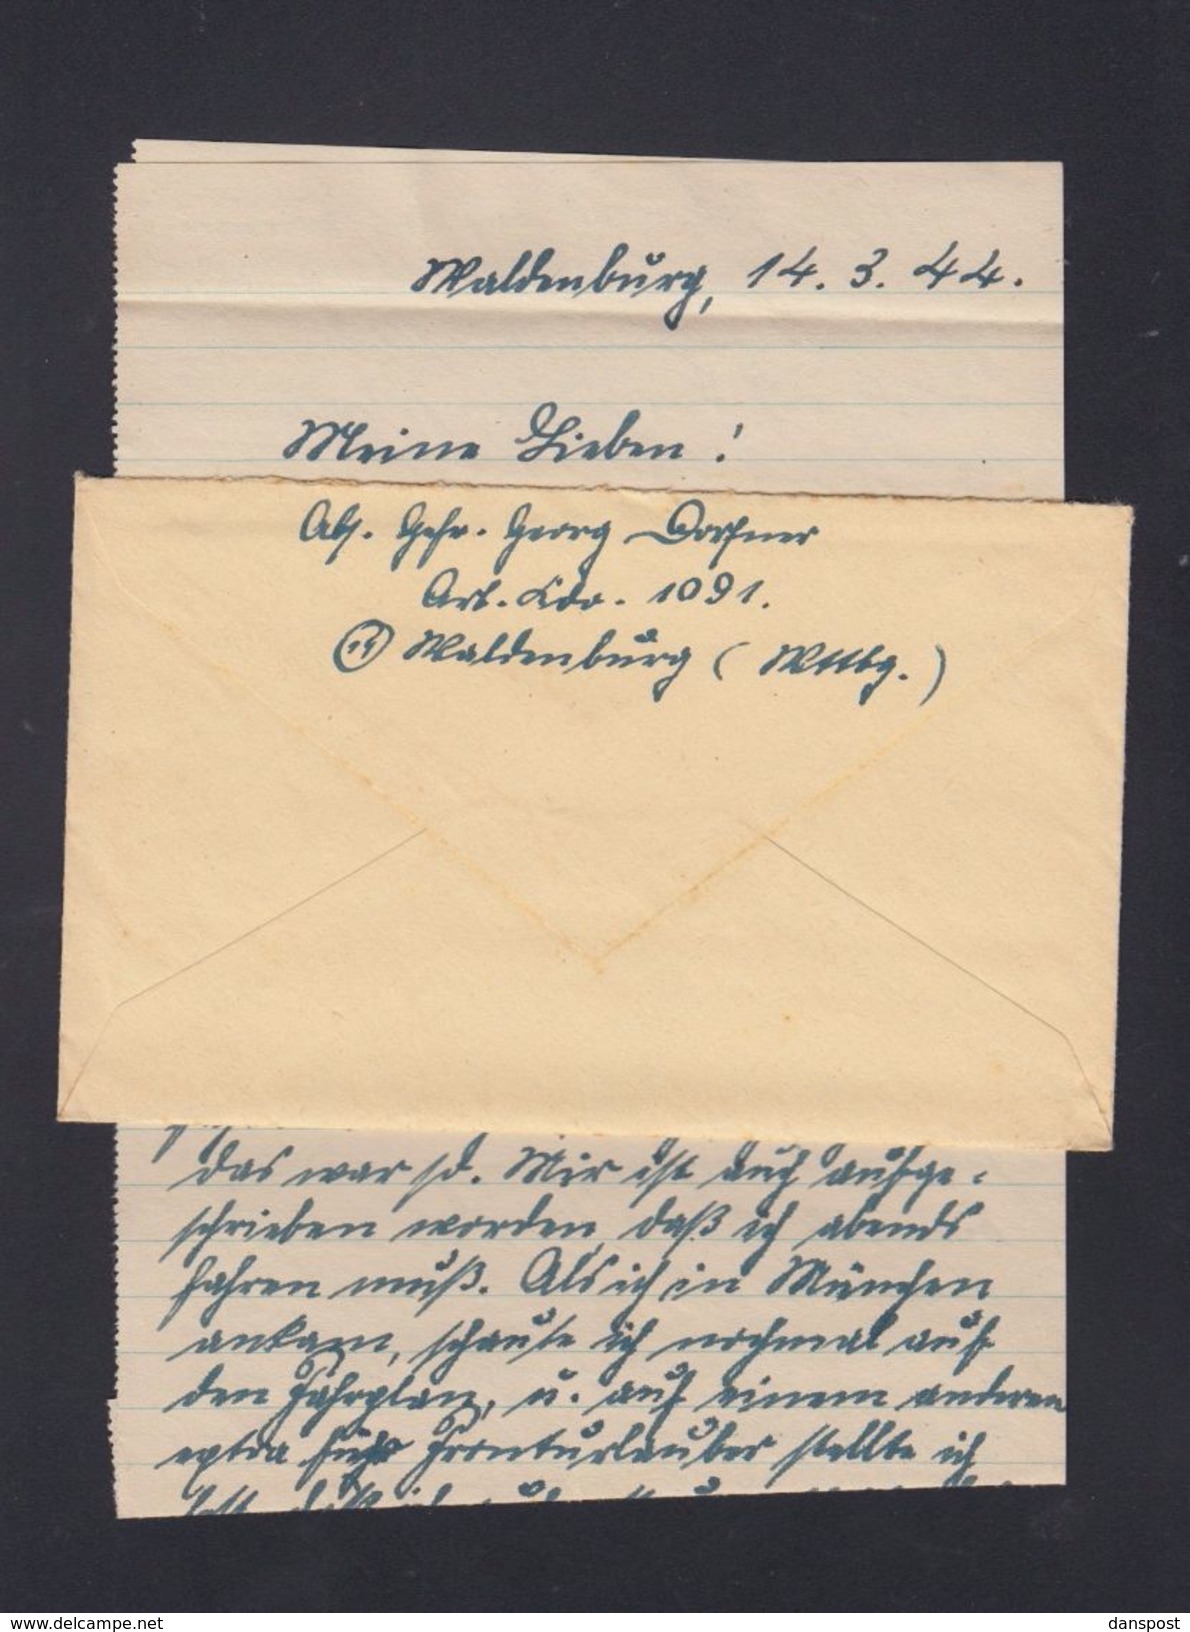 Waldenburg, 14. 3. 44.
Meine Lieben!
Abs. Gefr. Georg Dorfner
Arb. Kdo. 1091.
(14) Waldenburg (Wttbg.)
das war so. Mir ist auch aufge-
schrieben worden, daß ich abends
fahren muß. Als ich in München
ankam, schaute ich nochmal auf
den Fahrplan, u. auf einem anderen
extra für Fronturlauber stellte ich
fest, daß ich
delcampe.net
danspost